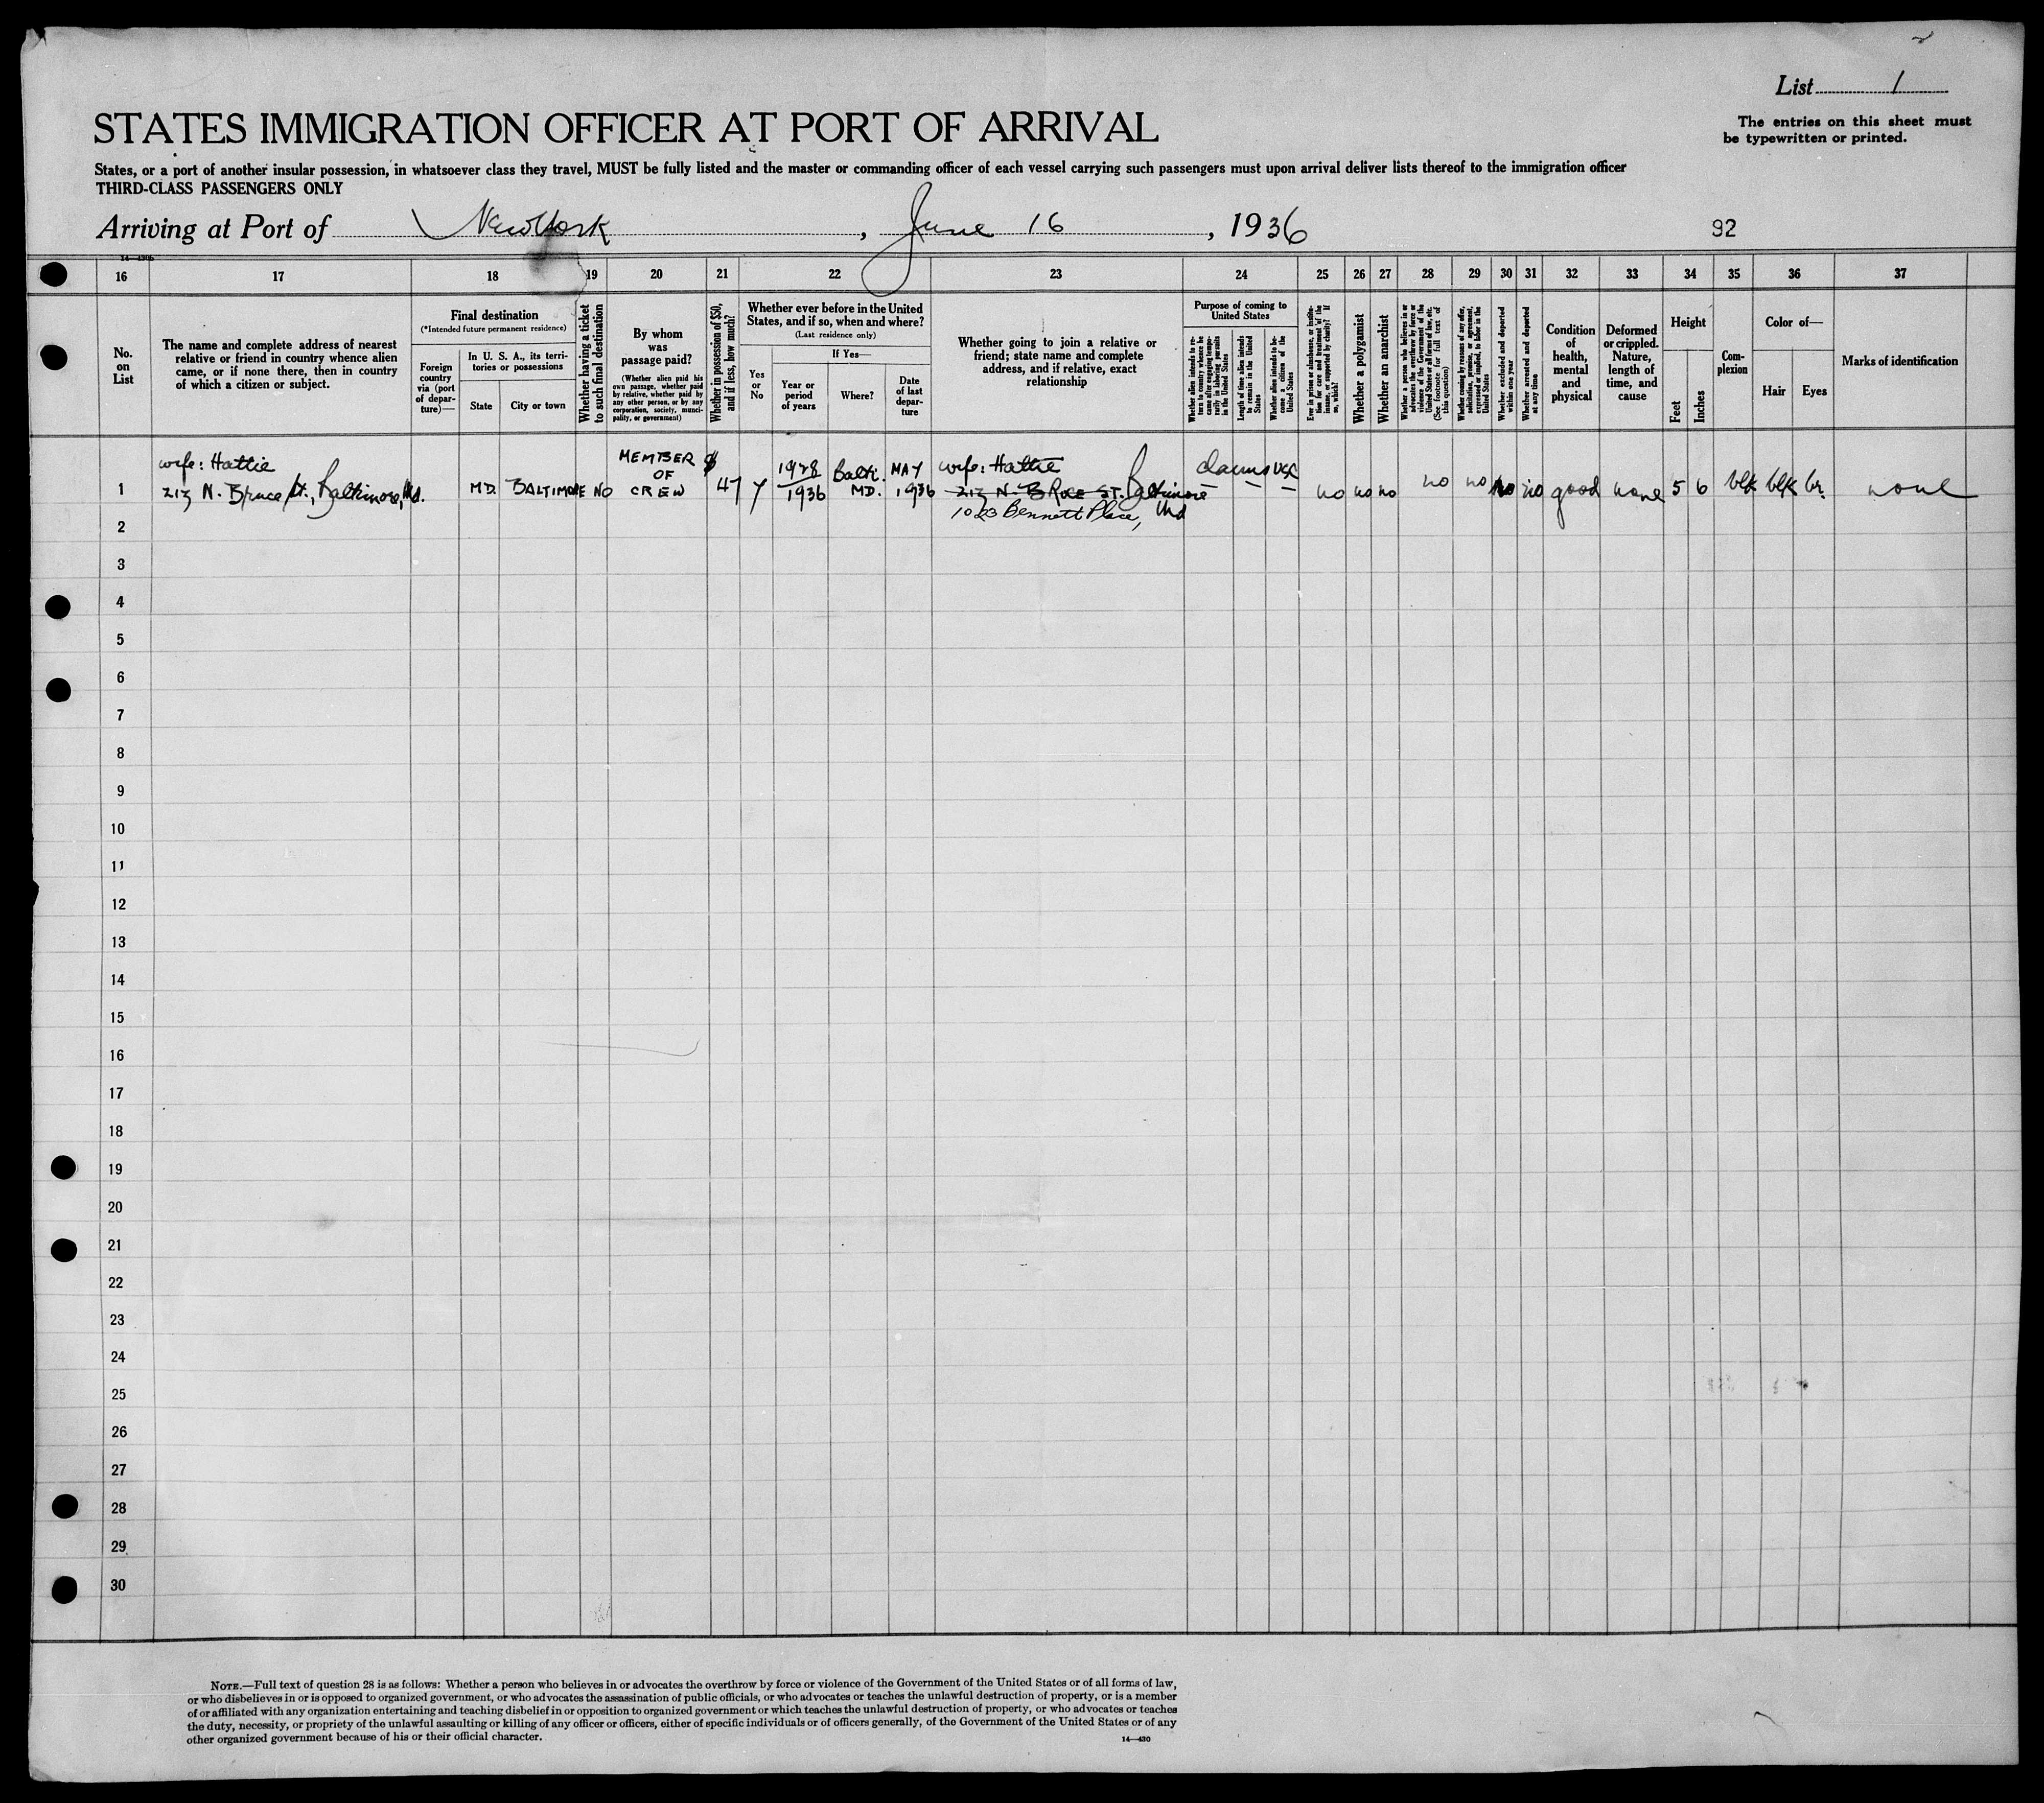 List 1
The entries on this sheet must
be typewritten or printed.
STATES IMMIGRATION OFFICER AT PORT OF ARRIVAL
States, or a port of another insular possession, in whatsoever class they travel, MUST be fully listed and the master or commanding officer of each vessel carrying such passengers must upon arrival deliver lists thereof to the immigration officer
THIRD-CLASS PASSENGERS ONLY
Arriving at Port of New York, June 16, 1936
92
16 17 18 19 20 21 22 23 24 25 26 27 28 29 30 31 32 33 34 35 36 37
No.
on
List
The name and complete address of nearest
relative or friend in country whence alien
came, or if none there, then in country
of which a citizen or subject.
Final destination
(*Intended future permanent residence)
Foreign
country
via (port
of depar-
ture)—
In U. S. A., its terri-
tories or possessions
State
City or town
Whether having a ticket
to such final destination
By whom
was
passage paid?
(Whether alien paid his
own passage, whether paid
by relative, whether paid by
any other person, or by any
corporation, society, munici-
pality, or government)
Whether in possession of $50,
and if less, how much?
Whether ever before in the United
States, and if so, when and where?
(Last residence only)
Yes
or
No
If Yes—
Year or
period
of years
Where?
Date
of last
depar-
ture
Whether going to join a relative or
friend; state name and complete
address, and if relative, exact
relationship
Purpose of coming to
United States
Whether alien intends to re-
turn to country whence he
came after engaging tempo-
rarily in laboring pursuits
in the United States
Length of time alien intends
to remain in the United
States
Whether alien intends to be-
come a citizen of the
United States
Ever in prison or almshouse, or institu-
tion for care and treatment of the
insane, or supported by charity? If
so, which?
Whether a polygamist
Whether an anarchist
Whether a person who believes in or
advocates the overthrow by force or
violence of the Government of the
United States or all forms of law, etc.
(See footnote for full text of
this question)
Whether coming by reasons of any offer,
solicitation, promise, or agreement,
expressed or implied, to labor in the
United States
Whether excluded and deported
within one year
Whether arrested and deported
at any time
Condition
of
health,
mental
and
physical
Deformed
or crippled.
Nature,
length of
time, and
cause
Height
Feet
Inches
Com-
plexion
Color of—
Hair
Eyes
Marks of identification
wife: Hattie MEMBER $ 1928 Balti. MAY wife: Hattie claims USC
1 213 N. Bruce St., Baltimore, Md. MD. BALTIMORE NO OF CREW 47 y 1936 MD. 1936 213 N. BRUCE ST. Baltimore — — — no no no no no no no good none 5 6 blk blk br. none
1023 Bennett Place, Md
2
3
4
5
6
7
8
9
10
11
12
13
14
15
16
17
18
19
20
21
22
23
24
25
26
27
28
29
30
NOTE.—Full text of question 28 is as follows: Whether a person who believes in or advocates the overthrow by force or violence of the Government of the United States or of all forms of law,
or who disbelieves in or is opposed to organized government, or who advocates the assassination of public officials, or who advocates or teaches the unlawful destruction of property, or is a member
of or affiliated with any organization entertaining and teaching disbelief in or opposition to organized government or which teaches the unlawful destruction of property, or who advocates or teaches
the duty, necessity, or propriety of the unlawful assaulting or killing of any officer or officers, either of specific individuals or of officers generally, of the Government of the United States or of any
other organized government because of his or their official character.
14—430